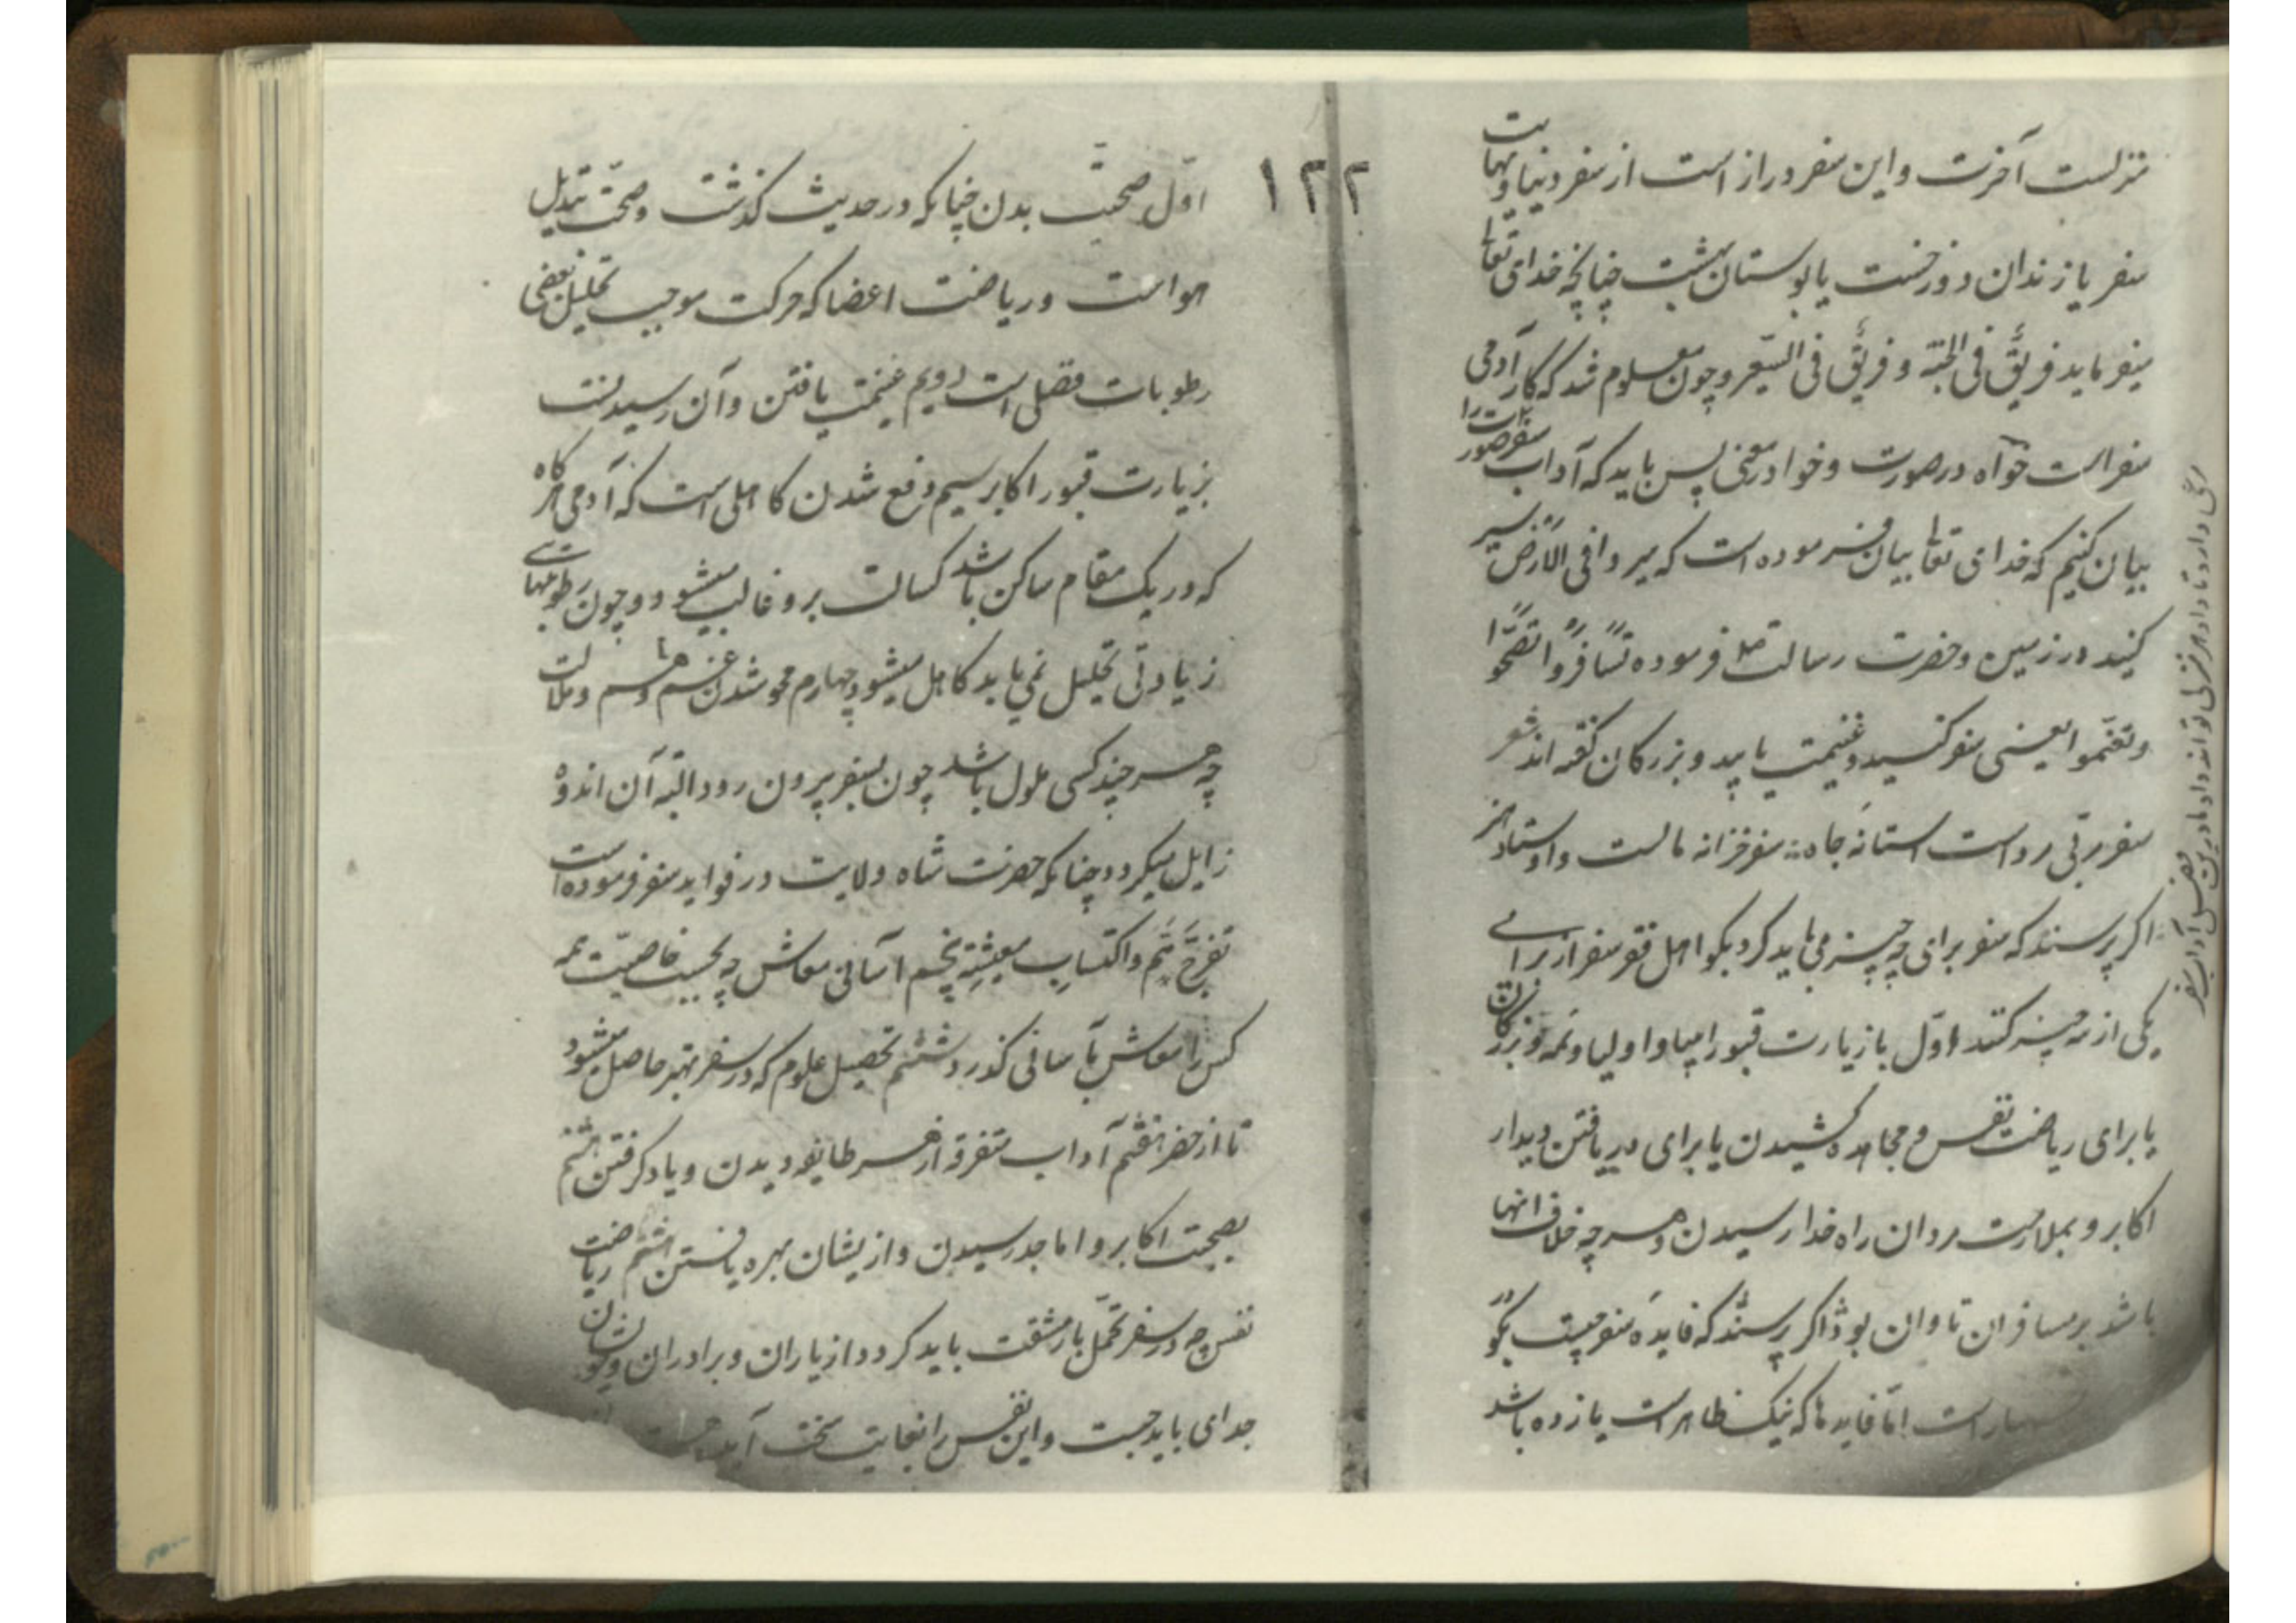 منزلست آخرت و این سفر دراز است از سفر دنیا و نهایت
سفر یا زندان دوزخست یا بوستان بهشت چنانچه خدای تعالی
میفرماید فریق فی الجنة و فریق فی السعیر و چون معلوم شد که کار آدمی
سفر است خواه در صورت و خواه در معنی پس باید که آداب سفر صورت را
بیان کنیم که خدای تعالی بیان فرموده است که سیروا فی الارض سیر
کنید در زمین و حضرت رسالت فرموده تسافروا تصحوا
و تغنموا یعنی سفر کنید و غنیمت یابید و بزرگان گفته اند شعر
سفر مربی مرد است آستانهٔ جاه سفر خزانه مالست و اوستاد هنر
اگر پرسند که سفر برای چه چیز می باید کرد بگو اهل فقر سفر از برای
یکی از سه چیز کنند اول یا زیارت قبور انبیا و اولیا و ائمه و بزرگان
یا برای ریاضت نفس و مجاهده کشیدن یا برای دریافتن دیدار
اکابر و بملازمت مردان راه خدا رسیدن و هر چه خلاف اینها
باشد بر مسافران تاوان بود اگر پرسند که فایدهٔ سفر چیست بگو
بسیار است اما فایدها که نیک ظاهر است یازده باشد
۱۲۲
اول صحت بدن چنانکه در حدیث گذشت و صحت تبدیل
هواست و ریاضت اعضا که حرکت موجب تحلیل بعضی
رطوبات فضلی است دویم غنیمت یافتن و آن رسیدنست
بزیارت قبور اکابر سیم دفع شدن کاهلی است که آدمی هرگاه
که در یک مقام ساکن باشد کسالت برو غالب میشود و چون رطوبتهای
زیادتی تحلیل نمی یابد کاهل میشود چهارم محو شدن غم و هم و ملالت
چه هر چند کسی ملول باشد چون بسفر بیرون رود البته آن اندوه
زایل میگردد چنانکه حضرت شاه ولایت در فواید سفر فرموده است
تفرج هم و اکتساب معیشة پنجم آسانی معاش چه بحسب خاصیت همه
کس را معاش بآسانی گذرد ششم تحصیل علوم که در سفر بهتر حاصل میشود
تا از حضر هفتم آداب متفرقه از هر طایفه دیدن و یاد گرفتن هشتم
بصحبت اکابر و اماجد رسیدن و ازیشان بهره یافتن نهم ریاضت
نفس چه در سفر تحمل بار مشقت باید کرد و از یاران و برادران و خویشان
جدای باید جست و این نفس را بغایت سخت آید